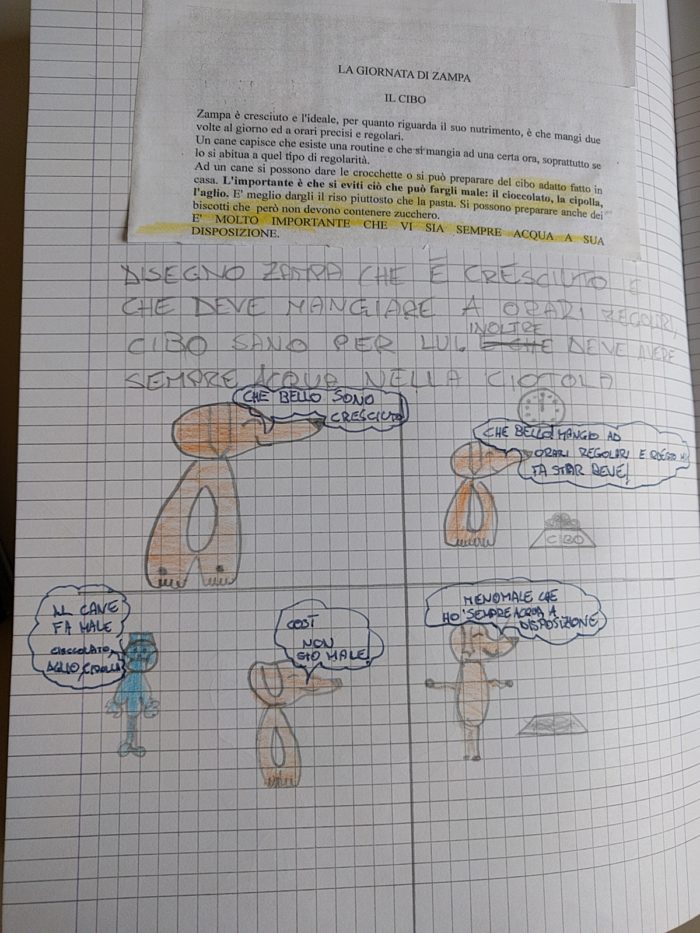 LA GIORNATA DI ZAMPA
IL CIBO
Zampa è cresciuto e l'ideale, per quanto riguarda il suo nutrimento, è che mangi due
volte al giorno ed a orari precisi e regolari.
Un cane capisce che esiste una routine e che si mangia ad una certa ora, soprattutto se
lo si abitua a quel tipo di regolarità.
Ad un cane si possono dare le crocchette o si può preparare del cibo adatto fatto in
casa. L'importante è che si eviti ciò che può fargli male: il cioccolato, la cipolla,
l'aglio. E' meglio dargli il riso piuttosto che la pasta. Si possono preparare anche dei
biscotti che però non devono contenere zucchero.
E' MOLTO IMPORTANTE CHE VI SIA SEMPRE ACQUA A SUA
DISPOSIZIONE.
DISEGNO ZAMPA CHE È CRESCIUTO E
CHE DEVE MANGIARE A ORARI REGOLARI,
INOLTRE
CIBO SANO PER LUI. DEVE AVERE
SEMPRE ACQUA NELLA CIOTOLA
CHE BELLO SONO
CRESCIUTO
CHE BELLO! MANGIO AD
ORARI REGOLARI E QUESTO MI
FA STAR BENE!
CIBO
AL CANE
FA MALE,
CIOCCOLATO,
AGLIO, CIPOLLA
COSÌ
NON
STO MALE
MENOMALE CHE
HO SEMPRE ACQUA A
DISPOSIZIONE